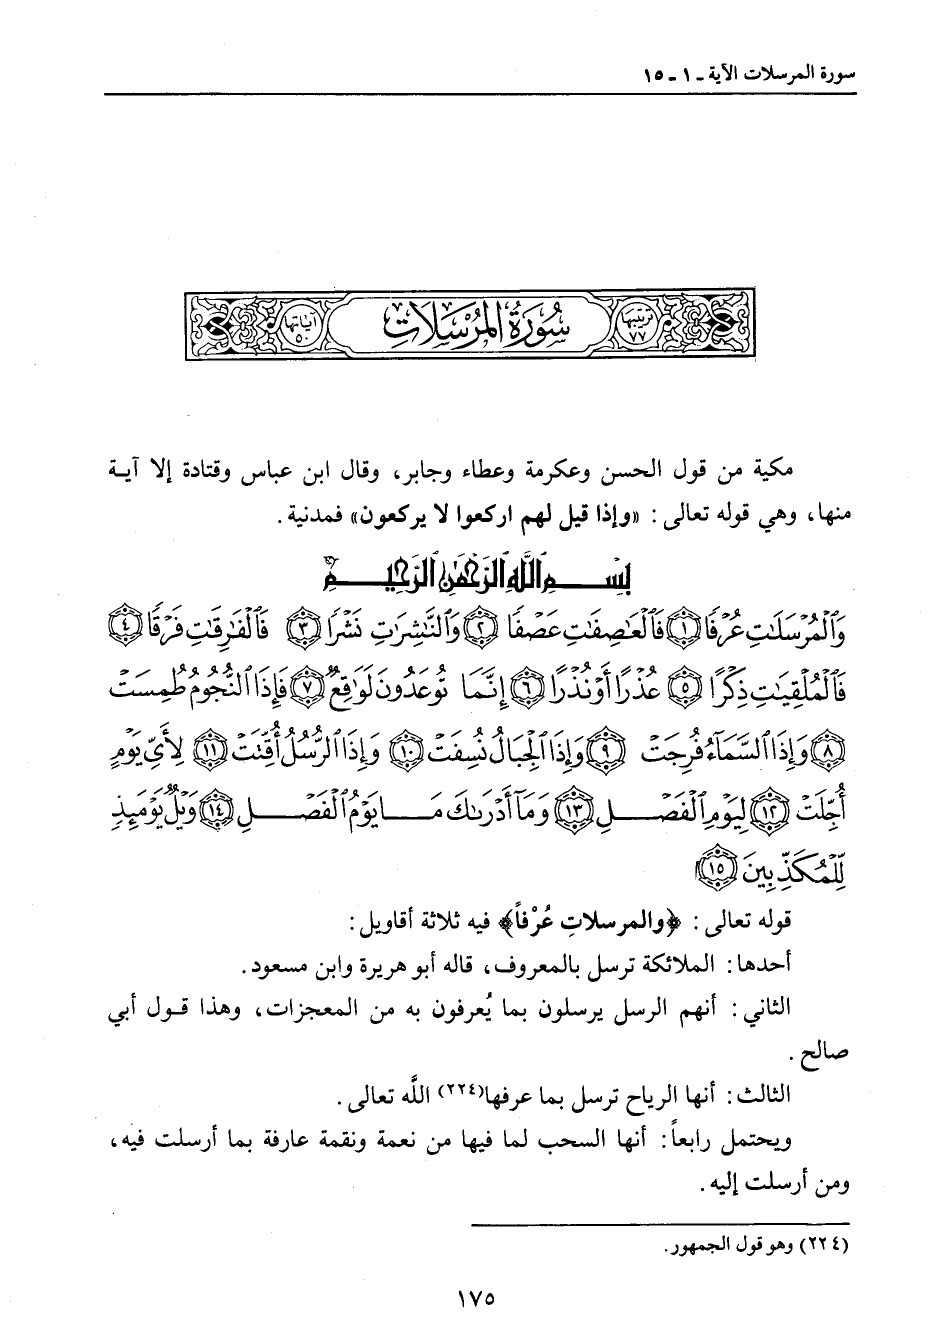 سورة المرسلات الآية ـ ١ ـ ١٥
ترتيبها ٧٧ سُورَةُ المُرْسَلَاتِ آياتها ٥٠
مكية من قول الحسن وعكرمة وعطاء وجابر، وقال ابن عباس وقتادة إلا آية
منها، وهي قوله تعالى: «وإذا قيل لهم اركعوا لا يركعون» فمدنية.
بِسْمِ اللَّهِ الرَّحْمَٰنِ الرَّحِيمِ
وَالْمُرْسَلَاتِ عُرْفًا ١ فَالْعَاصِفَاتِ عَصْفًا ٢ وَالنَّاشِرَاتِ نَشْرًا ٣ فَالْفَارِقَاتِ فَرْقًا ٤
فَالْمُلْقِيَاتِ ذِكْرًا ٥ عُذْرًا أَوْ نُذْرًا ٦ إِنَّمَا تُوعَدُونَ لَوَاقِعٌ ٧ فَإِذَا النُّجُومُ طُمِسَتْ
٨ وَإِذَا السَّمَاءُ فُرِجَتْ ٩ وَإِذَا الْجِبَالُ نُسِفَتْ ١٠ وَإِذَا الرُّسُلُ أُقِّتَتْ ١١ لِأَيِّ يَوْمٍ
أُجِّلَتْ ١٢ لِيَوْمِ الْفَصْلِ ١٣ وَمَا أَدْرَاكَ مَا يَوْمُ الْفَصْلِ ١٤ وَيْلٌ يَوْمَئِذٍ
لِّلْمُكَذِّبِينَ ١٥
قوله تعالى: ﴿والمرسلاتِ عُرْفاً﴾ فيه ثلاثة أقاويل:
أحدها: الملائكة ترسل بالمعروف، قاله أبو هريرة وابن مسعود.
الثاني: أنهم الرسل يرسلون بما يُعرفون به من المعجزات، وهذا قول أبي
صالح.
الثالث: أنها الرياح ترسل بما عرفها(٢٢٤) اللَّه تعالى.
ويحتمل رابعاً: أنها السحب لما فيها من نعمة ونقمة عارفة بما أرسلت فيه،
ومن أرسلت إليه.
(٢٢٤) وهو قول الجمهور.
١٧٥